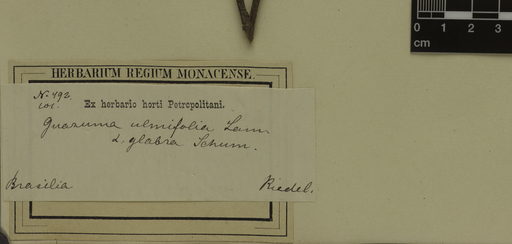 0 1 2 3
cm
HERBARIUM REGIUM MONACENSE.
N. 492.
Ex herbario horti Petropolitani.
Guazuma ulmifolia Lam
α. glabra Schum.
Brasilia Riedel.